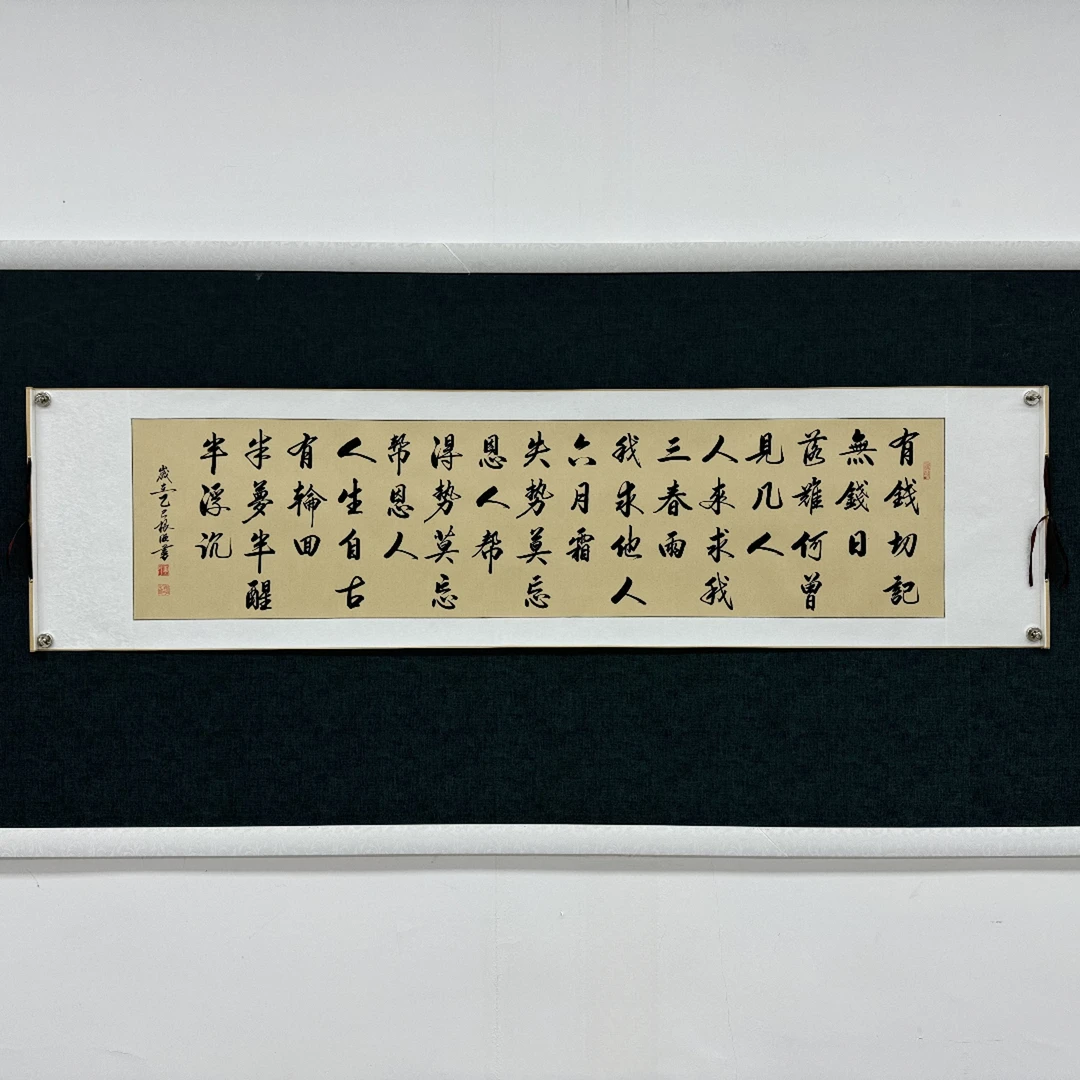 有錢切記
無錢日
落難何曾
見几人
人來求我
三春雨
我求他人
六月霜
失势莫忘
恩人帮
得势莫忘
帮恩人
人生自古
有輪回
半夢半醒
半浮沉
歲在乙巳書